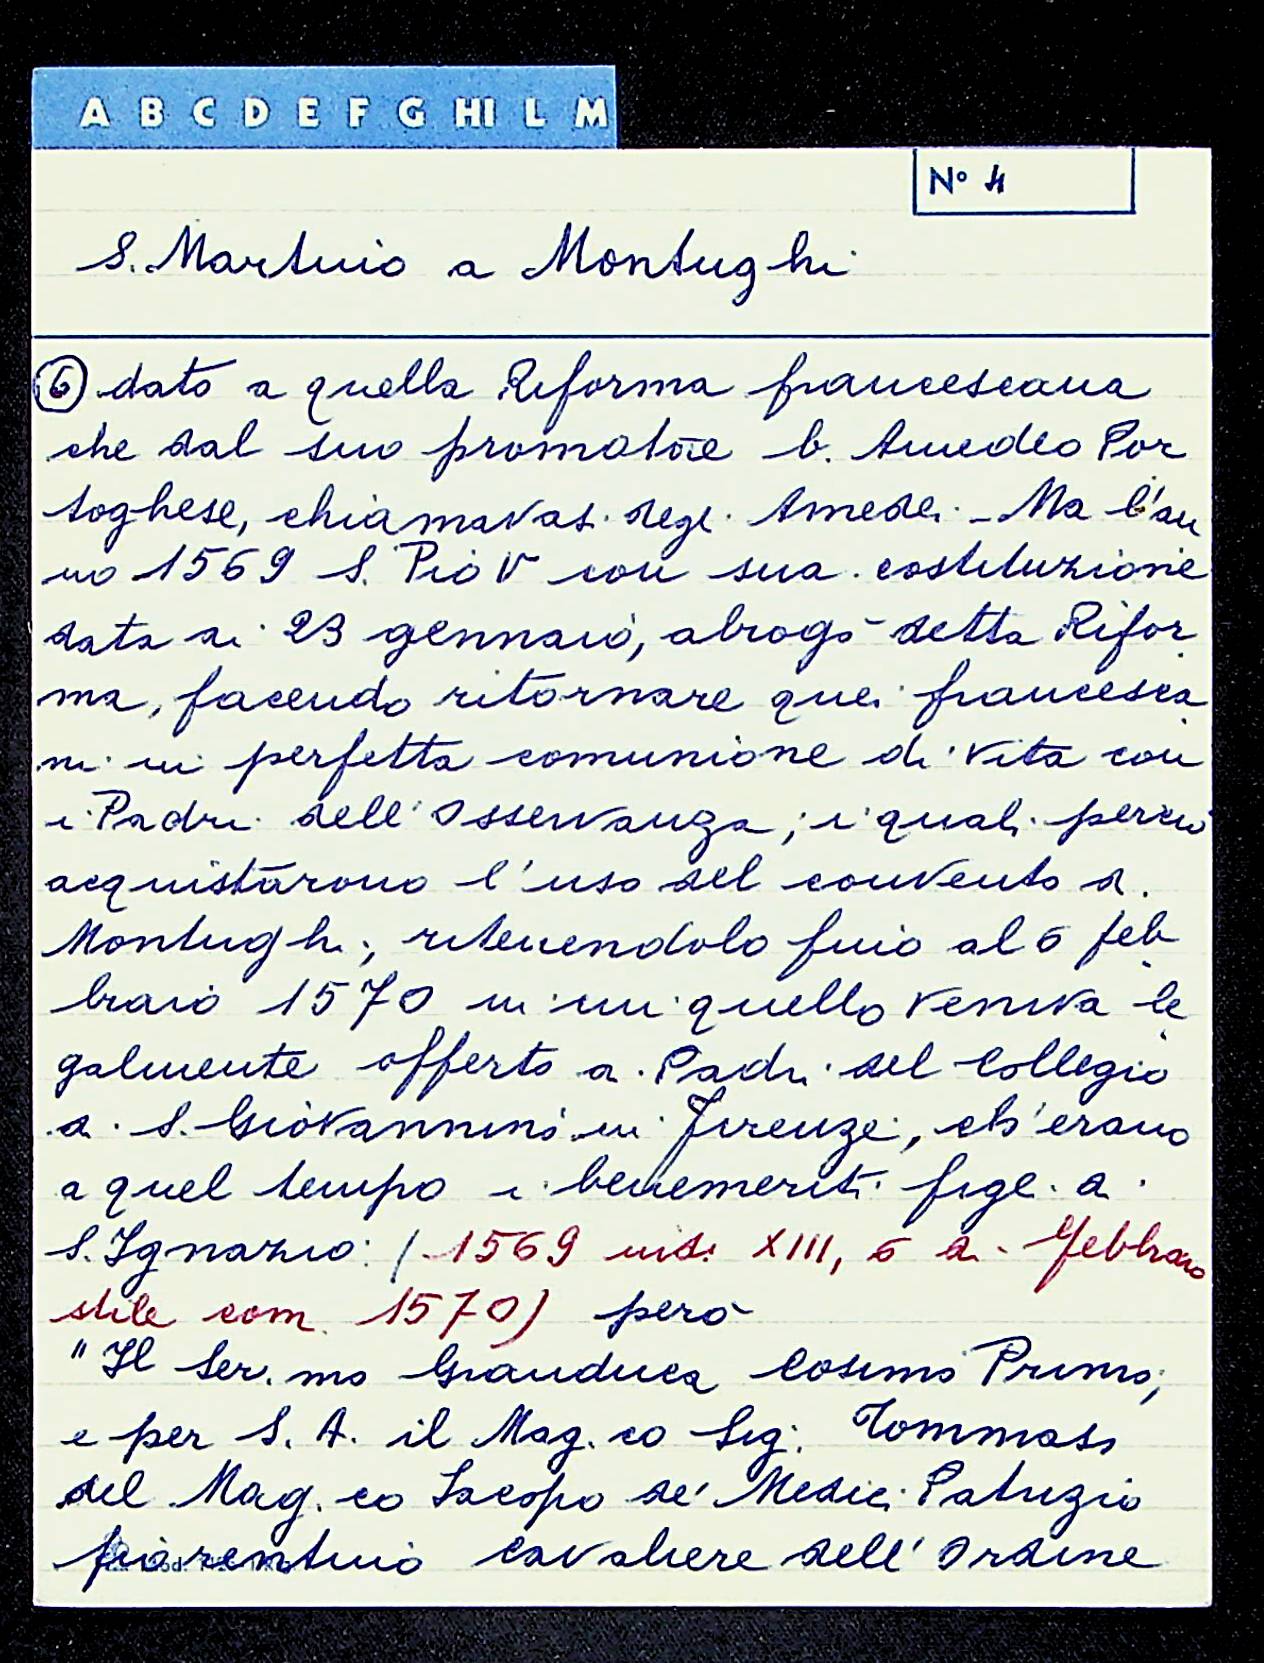 A B C D E F G HI L M
N° 4
S. Martino a Montughi
6 dato a quella Riforma francescana
che dal suo promotore b. Amedeo Por
toghese, chiamavasi degli Amedei. - Ma l'an
no 1569 S. Pio V con sua costituzione
data ai 23 gennaio, abrogò detta Rifor
ma, facendo ritornare quei francesca
ni in perfetta comunione di vita con
i Padri dell'Osservanza; i quali perciò
acquistarono l'uso del convento di
Montughi, ritenendolo fino al 6 feb
braio 1570 in cui quello veniva le
galmente offerto ai Padri del Collegio
di S. Giovannino in Firenze, ch'erano
a quel tempo i benemeriti figli di
S. Ignazio: (1569 ind: XIII, 6 di Febbraio
stile com. 1570) però
"Il Ser.mo Granduca Cosimo Primo,
e per S. A. il Mag.co Sig: Tommaso
del Mag.co Iacopo de' Medici Patrizio
fiorentino cavaliere dell'Ordine